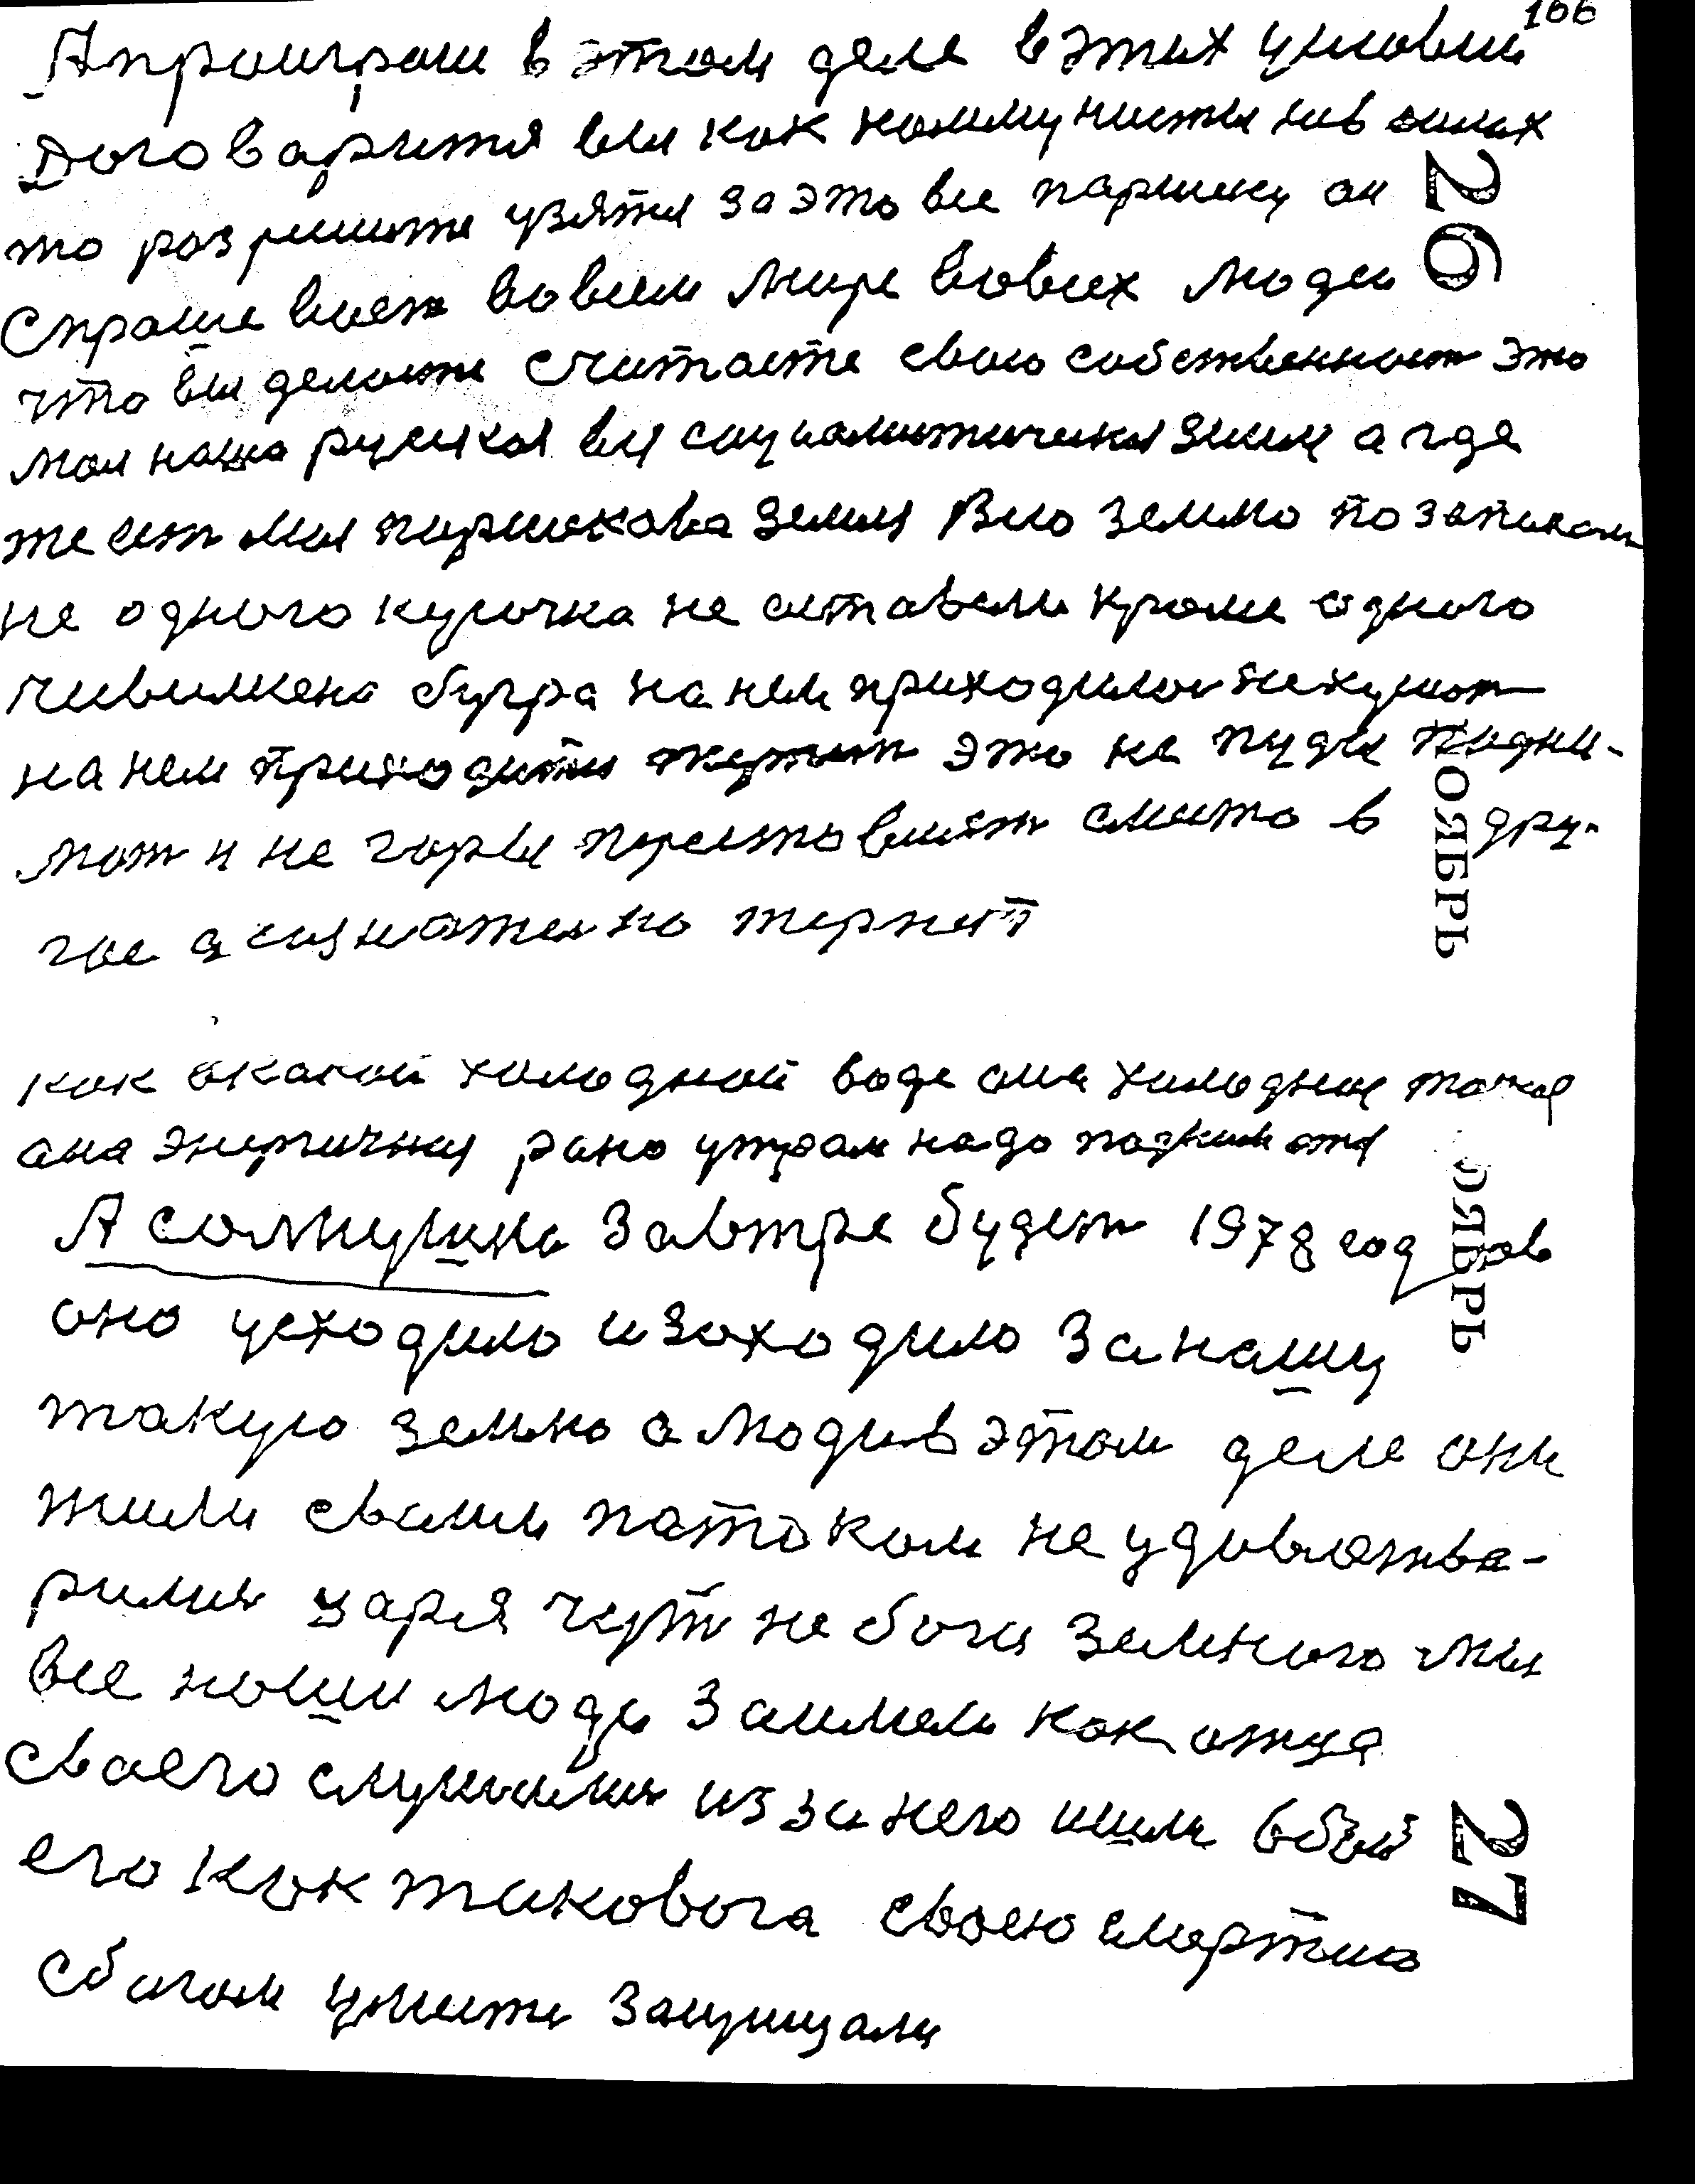 166
А проиграш в этом деле в этих условии
Договарится вы как коммунисты не в силах
то разришите узятся за это все паршику он
Спрашевает во всем мире во всех людей
26
что вы делаете считаете свою собственност это
моя наша руская вся социалистическая земля а где
же ест моя паршекова земля Всю землю позапахали
не одного кусочка не оставели кроме одного
чивилкена бугра на нем приходилося не кушат
на нем приходится это не пуды подни-
мат и не горы преставлят с места в дру-
гое а сознателно терпет
НОЯБРЬ
как окасой холодной воде она холодная такая
она энергичная рано утрам надо подниматся
А солнушко завтре будет 1978 год
НОЯБРЬ
оно усходило и заходило за нашу
такую землю а люди в этом деле они
жили сваим патоком не удовлетва-
рилис царя чут не бога земного мы
все наши люди заимели как отца
сваего слушалис из за него шли в бой
27
его как таковога своею смертию
с богом умести защищали